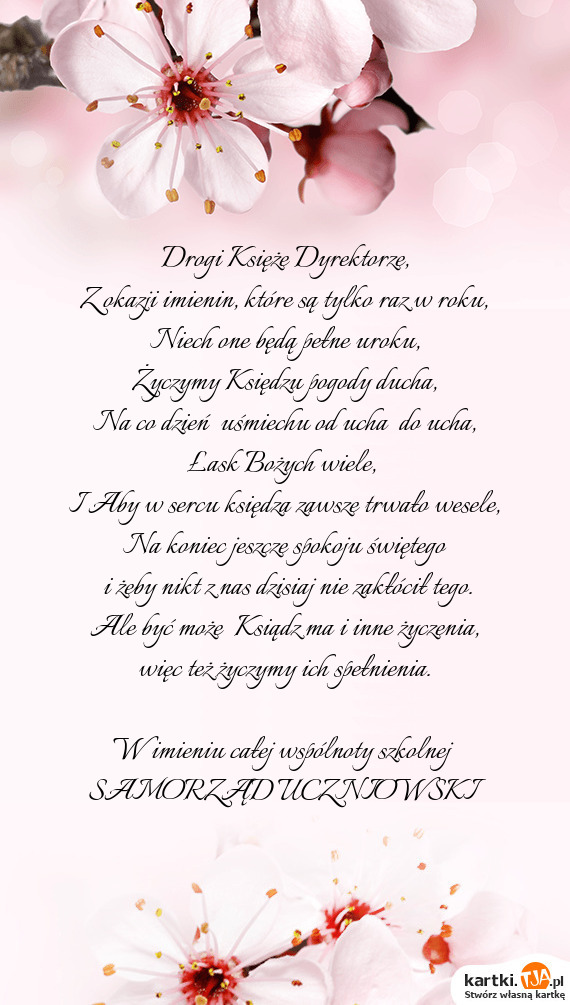 Drogi Księżę Dyrektorze,
Z okazji imienin, które są tylko raz w roku,
Niech one będą pełne uroku,
Życzymy Księdzu pogody ducha,
Na co dzień uśmiechu od ucha do ucha,
Łask Bożych wiele,
I Aby w sercu księdza zawsze trwało wesele,
Na koniec jeszcze spokoju świętego
i żeby nikt z nas dzisiaj nie zakłócił tego.
Ale być może Ksiądz ma i inne życzenia,
więc też życzymy ich spełnienia.

W imieniu całej wspólnoty szkolnej
SAMORZĄD UCZNIOWSKI
kartki.TJA.pl
Stwórz własną kartkę